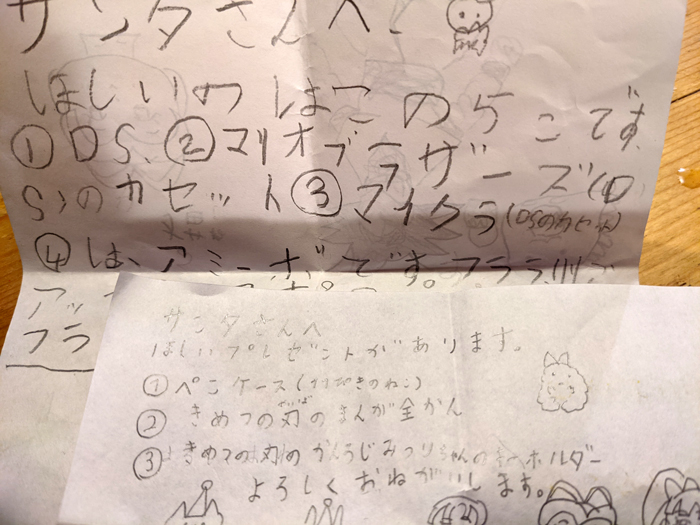 サンタさんへ
ほしいのはこの5こです
①DS、②マリオブラザーズ(D
S)のカセット③マイクラ(DSのカセット)
④は、アミーボです。
フラ
サンタさんへ
ほしいプレゼントがあります。
①ペこケース(
②きめつの刃のまんが全かん
③きめつの刃のかんろじみつりちゃんのキーホルダー
よろしくおねがいします。